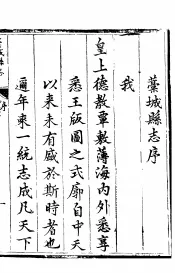 藁城縣志序
我
皇上德教覃敷薄海內外悉尊
悉王版圖之式廓自中天
以來未有盛於斯時者也
邇年來一統志成凡天下